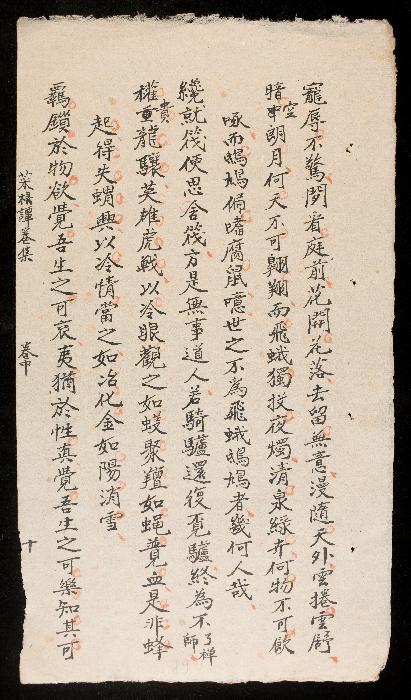 寵辱不驚閑看庭前花開花落去留無意漫隨天外雲捲雲舒
晴空朗月何天不可翺翔而飛蛾獨投夜燭清泉綠卉何物不可飲
啄而鴟鴞偏嗜腐鼠噫世之不為飛蛾鴟鴞者幾何人哉
纔就筏便思舍筏方是無事道人若騎驢還復覓驢終為不了禪師
權貴龍驤英雄虎戰以冷眼觀之如蟻聚羶如蝇競血是非蜂
起得失蝟興以冷情當之如冶化金如陽消雪
羈鎖於物欲覺吾生之可哀夷猶於性真覺吾生之可樂知其可
菜根譚卷集
十